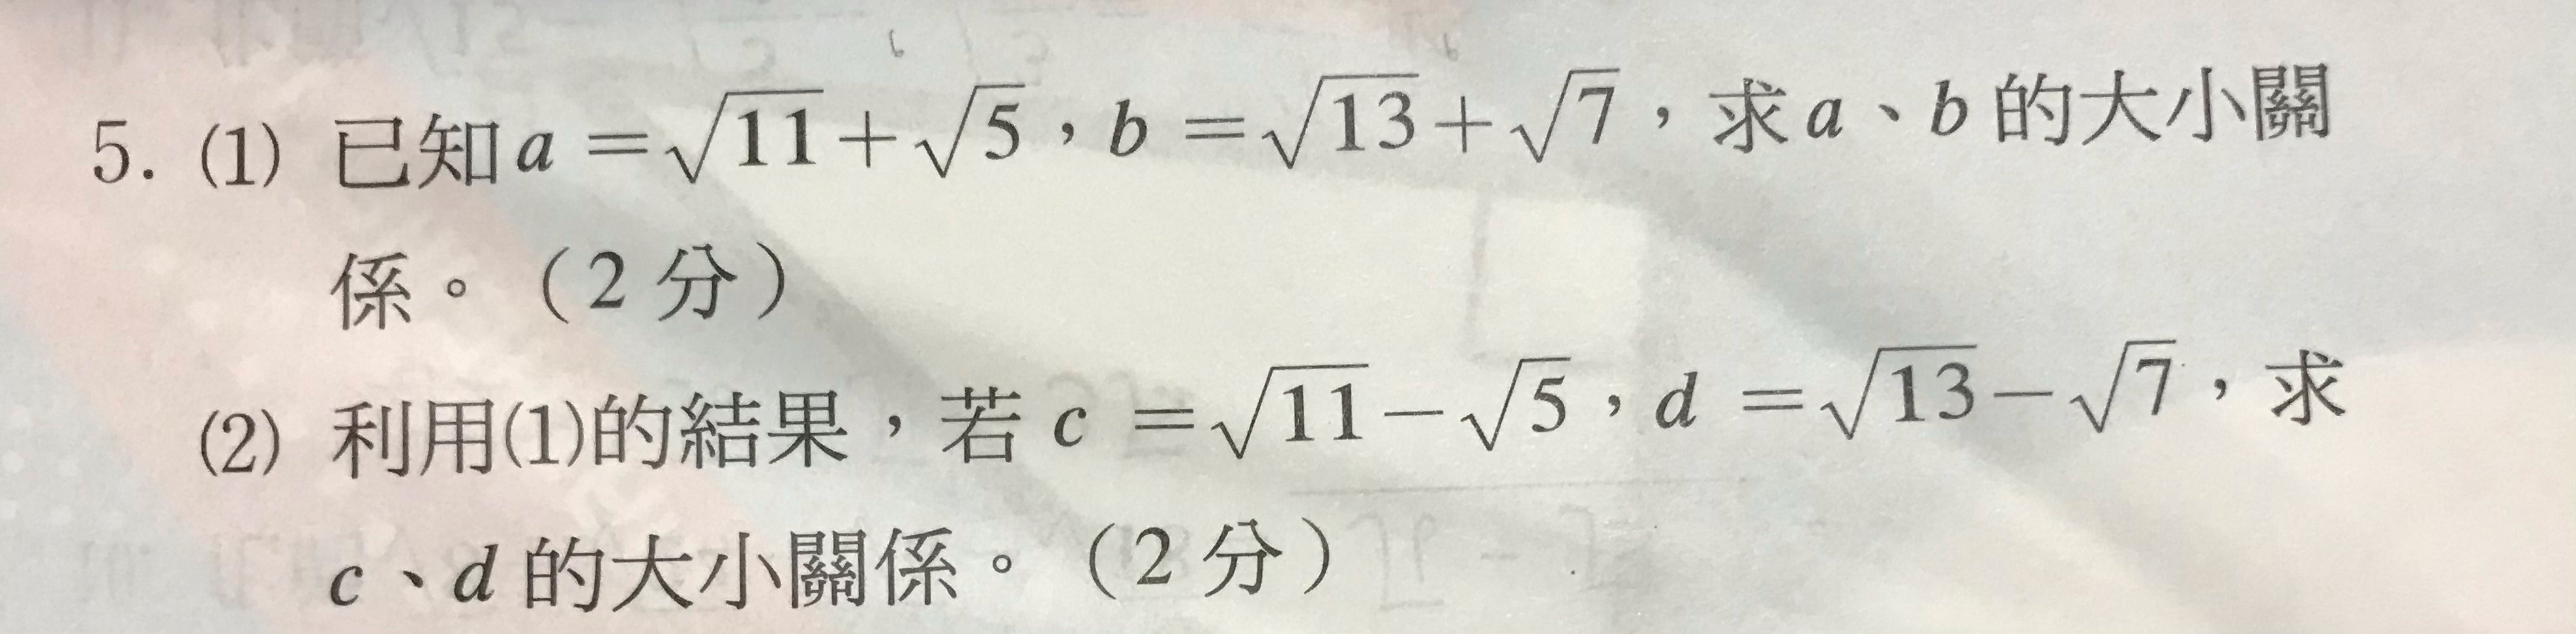 5. (1) 已知a=√11+√5，b=√13+√7，求a、b的大小關
係。（2分）
(2) 利用(1)的結果，若c=√11−√5，d=√13−√7，求
c、d的大小關係。（2分）